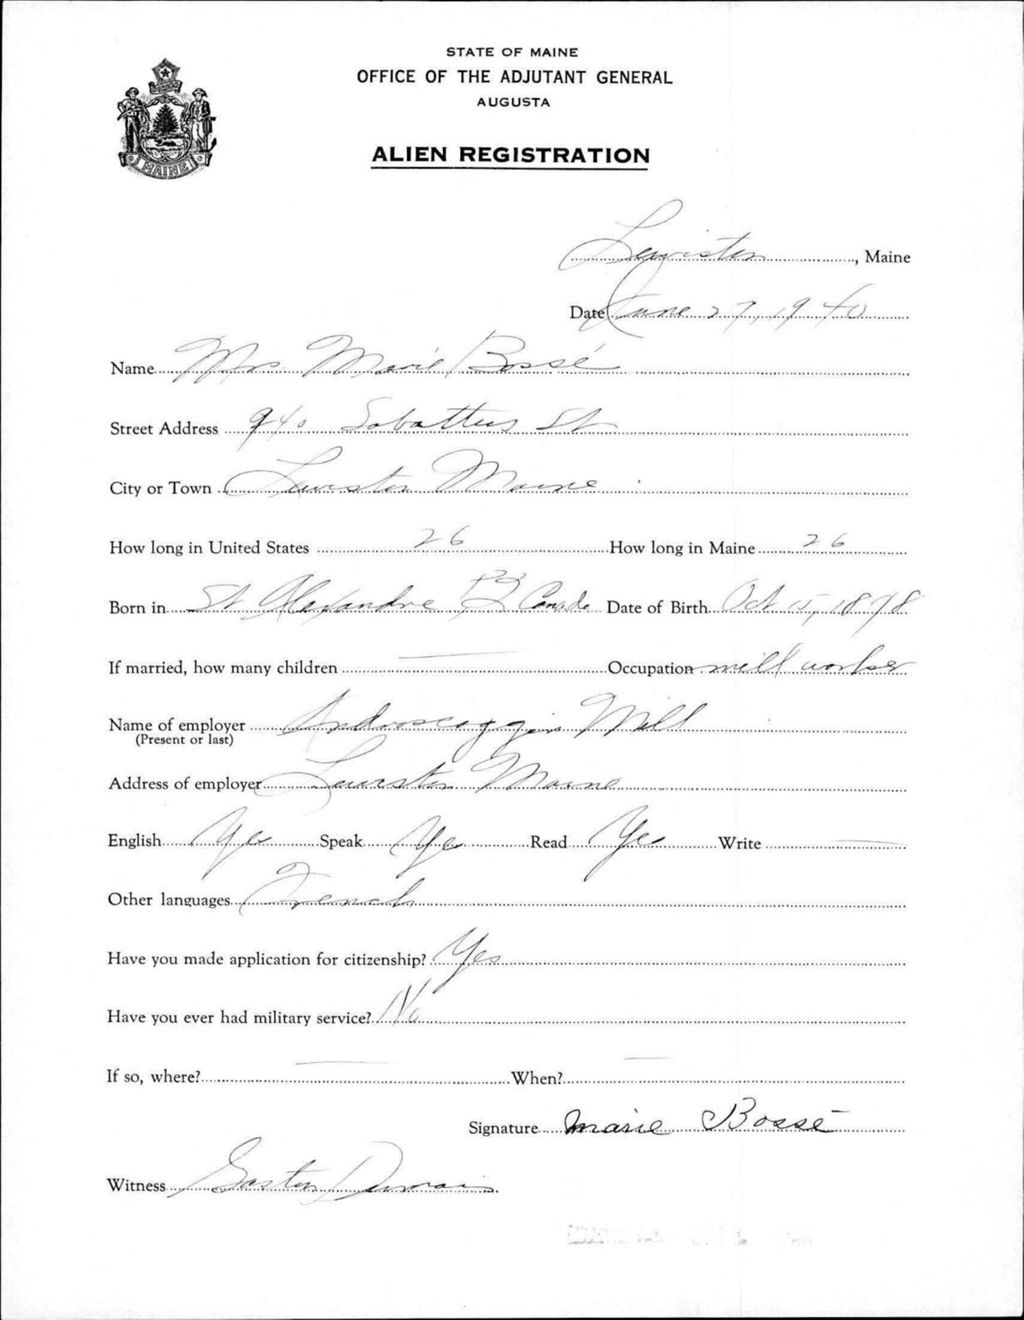 STATE OF MAINE
OFFICE OF THE ADJUTANT GENERAL
AUGUSTA
ALIEN REGISTRATION
MAINE
Lewiston, Maine
Date June 27, 1940
Name Mrs. Marie Bossé
Street Address 940 Sabattus St
City or Town Lewiston Maine
How long in United States 26 How long in Maine 26
Born in St Alexandre PQ Canada Date of Birth Oct 15, 1878
If married, how many children — Occupation mill worker
Name of employer Androscoggin Mill
(Present or last)
Address of employer Lewiston Maine
English Yes Speak Yes Read Yes Write —
Other languages French
Have you made application for citizenship? Yes
Have you ever had military service? No
If so, where? — When? —
Signature Marie Bossé
Witness Gaston